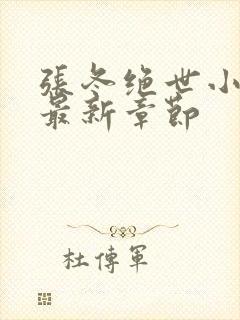 張冬绝世小
最新章節
杜傳軍